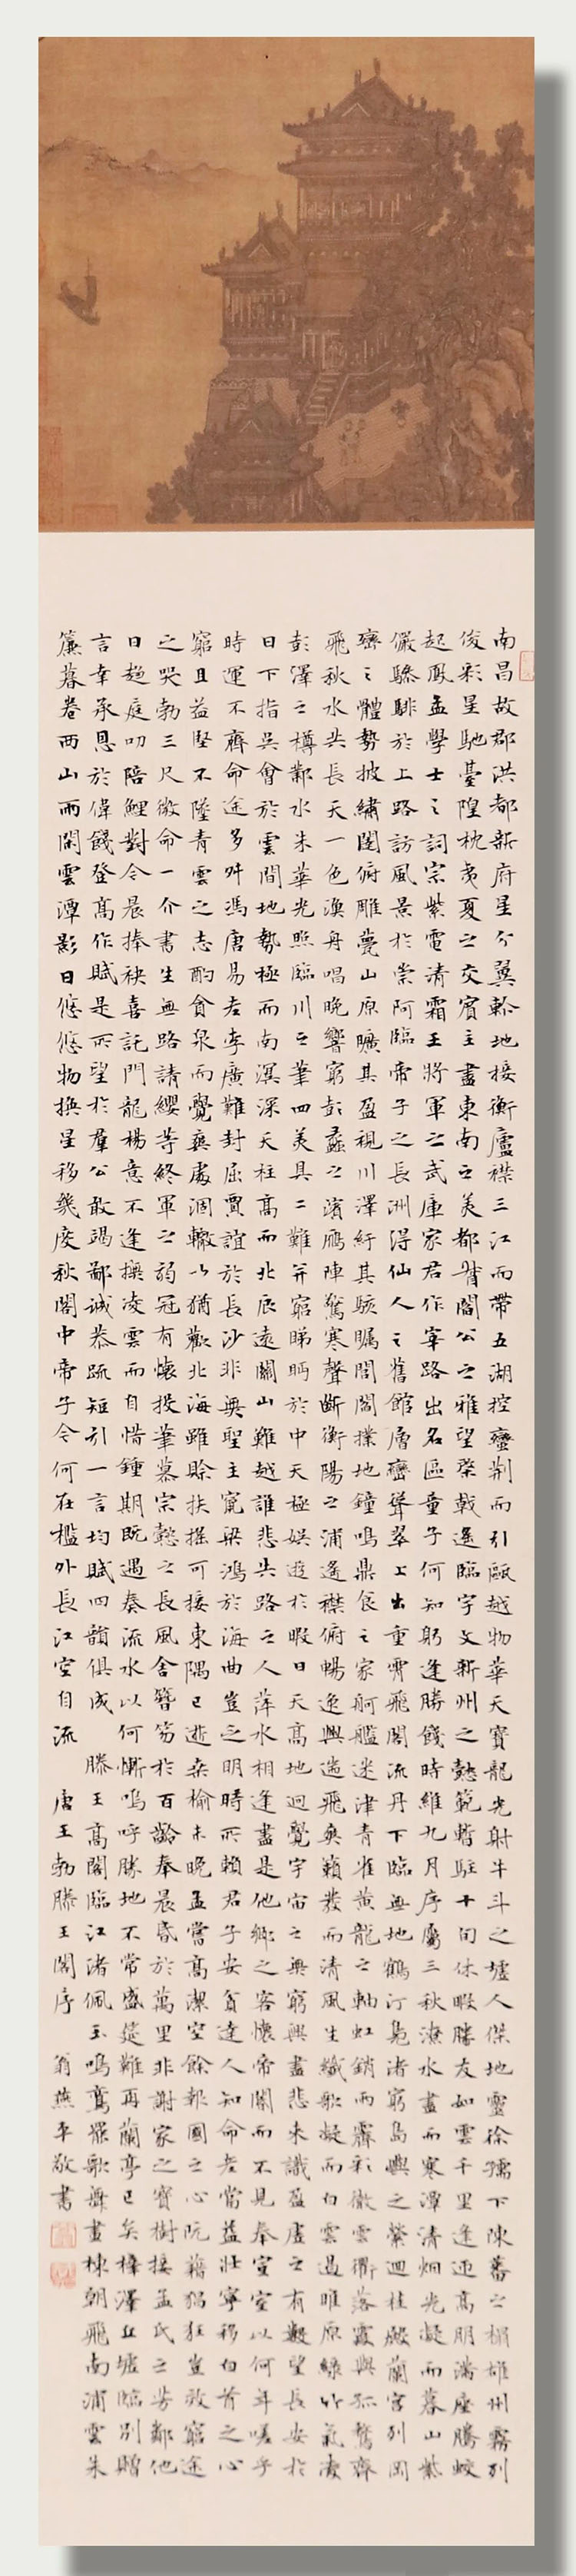 南昌故郡洪都新府星分翼軫地接衡廬襟三江而帶五湖控蠻荊而引甌越物華天寶龍光射牛斗之墟人傑地靈徐孺下陳蕃之榻雄州霧列
俊彩星馳臺隍枕夷夏之交賓主盡東南之美都督閻公之雅望棨戟遙臨宇文新州之懿範暫駐十旬休暇勝友如雲千里逢迎高朋滿座騰蛟
起鳳孟學士之詞宗紫電清霜王將軍之武庫家君作宰路出名區童子何知躬逢勝餞時維九月序屬三秋潦水盡而寒潭清烟光凝而暮山紫
儼驂騑於上路訪風景於崇阿臨帝子之長洲得仙人之舊館層巒聳翠上出重霄飛閣流丹下臨無地鶴汀鳧渚窮島嶼之縈迴桂殿蘭宮列岡
巒之體勢披繡闥俯雕甍山原曠其盈視川澤紆其駭矚閭閻撲地鐘鳴鼎食之家舸艦迷津青雀黃龍之軸虹銷雨霽彩徹雲衢落霞與孤鶩齊
飛秋水共長天一色漁舟唱晚響窮彭蠡之濱雁陣驚寒聲斷衡陽之浦遙襟俯暢逸興遄飛爽籟發而清風生纖歌凝而白雲遏睢園綠竹氣凌
彭澤之樽鄴水朱華光照臨川之筆四美具二難并窮睇眄於中天極娛遊於暇日天高地迥覺宇宙之無窮興盡悲來識盈虛之有數望長安於
日下指吳會於雲間地勢極而南溟深天柱高而北辰遠關山難越誰悲失路之人萍水相逢盡是他鄉之客懷帝閽而不見奉宣室以何年嗟乎
時運不齊命途多舛馮唐易老李廣難封屈賈誼於長沙非無聖主竄梁鴻於海曲豈乏明時所賴君子安貧達人知命老當益壯寧移白首之心
窮且益堅不墜青雲之志酌貪泉而覺爽處涸轍以猶歡北海雖賒扶搖可接東隅已逝桑榆未晚孟嘗高潔空餘報國之心阮籍猖狂豈效窮途
之哭勃三尺微命一介書生無路請纓等終軍之弱冠有懷投筆慕宗愨之長風舍簪笏於百齡奉晨昏於萬里非謝家之寶樹接孟氏之芳鄰他
日趨庭叨陪鯉對今晨捧袂喜託門龍楊意不逢撫凌雲而自惜鍾期既遇奏流水以何慚嗚呼勝地不常盛筵難再蘭亭已矣梓澤丘墟臨別贈
言幸承恩於偉餞登高作賦是所望於羣公敢竭鄙誠恭疏短引一言均賦四韻俱成 滕王高閣臨江渚佩玉鳴鸞罷歌舞畫棟朝飛南浦雲朱
簾暮卷西山雨閑雲潭影日悠悠物換星移幾度秋閣中帝子今何在檻外長江空自流 唐王勃滕王閣序 翁燕平敬書